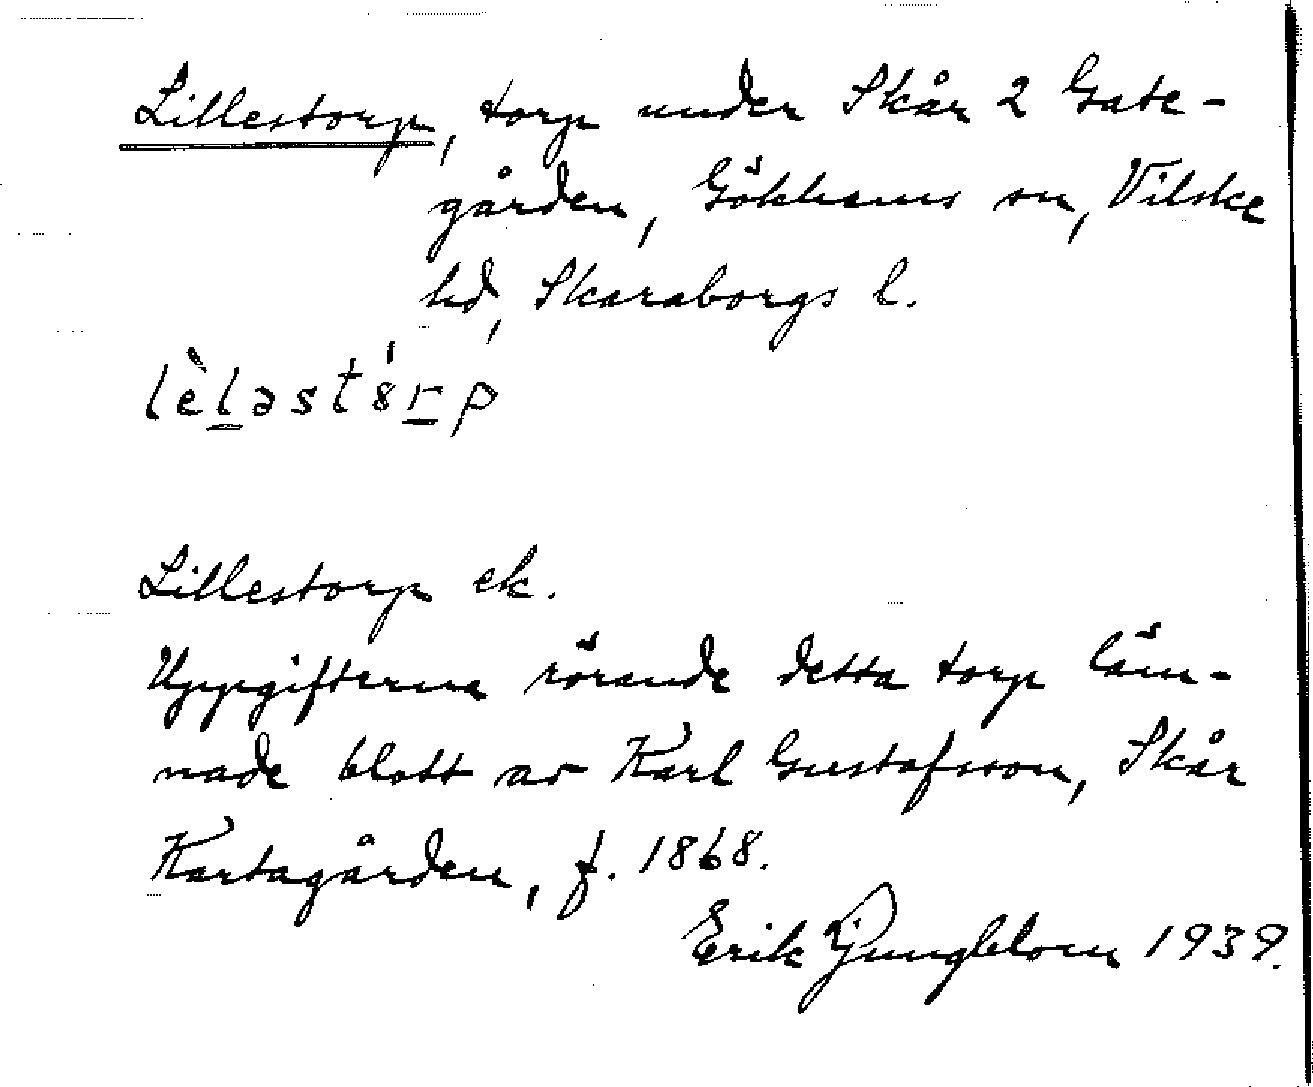 Lillestorp, torp under Skår 2 Gate-
gården, Gökhems sn, Vilske
hd, Skaraborgs l.
lèləst8́rp
Lillestorp ek.
Uppgifterna rörande detta torp läm-
nade blott av Karl Gustafsson, Skår
Kartagården, f. 1868.
Erik Ljungblom 1939.